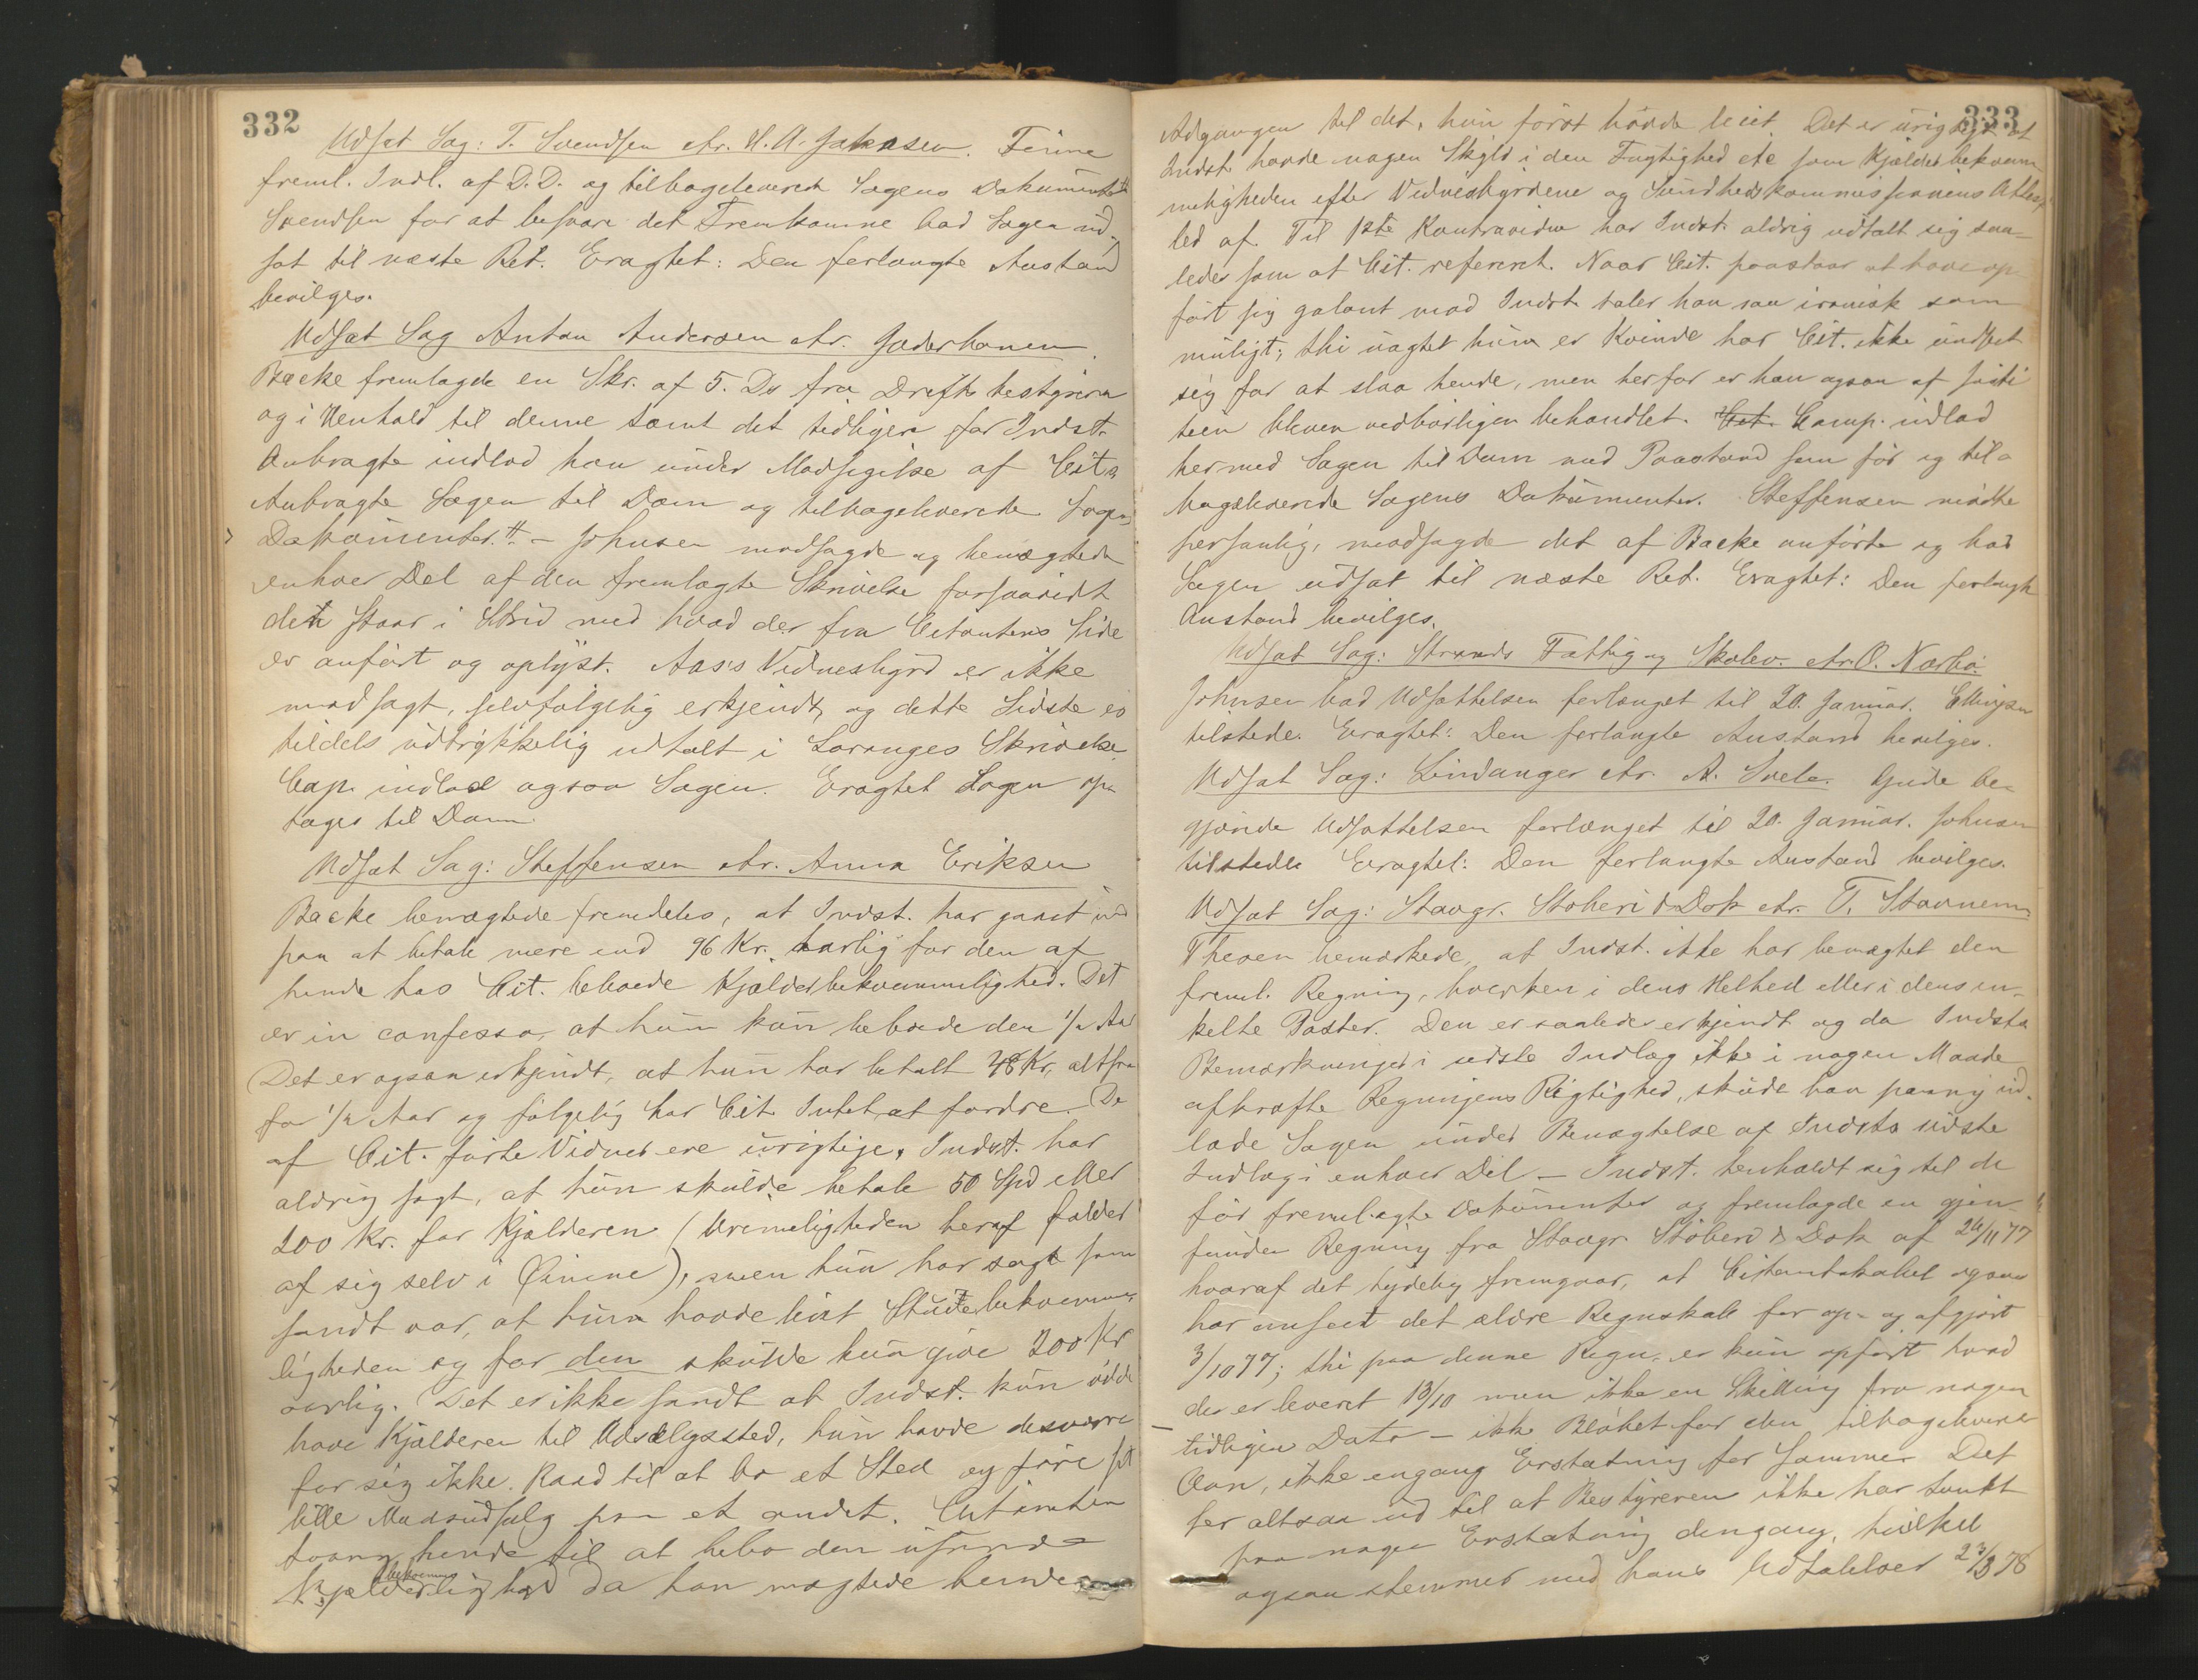 332
Udsat Sag: T. Svendsen ctr. H. A. Jakobsen. Finne
freml. Indl. af D.D. og tilbageleverede Sagens Dokumenter
Svendsen for at besvare det Fremkomne bad Sagen ud-
sat til næste Ret. Eragtet: Den forlangte Anstand
bevilges.
Udsat Sag Anton Andersen ctr. Jæderbanen.
Backe fremlagde en Skr. af 5. Ds fra Driftsbestyreren
og i Henhold til denne samt det tidligere for Indst.
Anbragte indlod han under Modsigelse af Cit.s
Anbragte Sagen til Dom og tilbageleverede Sagens
Dokumenter. – Johnsen modsagde og benægtede
enhver Del af den fremlagte Skrivelse forsaavidt
den staar i Strid med hvad der fra Citantens Side
er anført og oplyst. Aas's Vidnesbyrd er ikke
modsagt, selvfølgelig erkjendt, og dette Sidste er
tildels udtrykkelig udtalt i Loranges Skrivelse.
Cap. indlod ogsaa Sagen. Eragtet Sagen op-
tages til Dom.
Udsat Sag: Steffensen ctr. Anna Eriksen
Backe benægtede fremdeles, at Indst. har gaaet ind
paa at betale mere end 96 Kr. aarlig for den af
hende hos Cit. beboede Kjælderbekvemmelighed. Det
er in confesso, at hun kun beboede den 1/2 Aar
Det er ogsaa erkjendt, at hun har betalt 48 Kr, altsaa
for 1/2 Aar og følgelig har Cit. Intet at fordre. De
af Cit. førte Vidner ere urigtige. Indst. har
aldrig sagt, at hun skulde betale 50 Spd eller
200 Kr. for Kjælderen (Urimeligheden heraf falder
af sig selv i Øinene), men hun har sagt som
sandt var, at hun havde leiet Stuebekvemme-
ligheden og for den skulde hun give 200 Kr
aarlig. Det er ikke sandt at Indst. kun vilde
have Kjælderen til Udsalgssted, hun havde desværre
for sig ikke Raad til at bo et Sted og føre sit
lille Madudsalg paa et andet. Citanten
tvang hende til at bebo den usunde
Kjælderbekvemmelighed da han nægtede hende
333
Adgangen til det, hun først havde leiet. Det er urigtigt at
Indst. havde nogen Skyld i den Fugtighed etc som Kjælderbekvem-
meligheden efter Vidnesbyrdene og Sundhedskommissionens Attest
led af. Til 1ste Kontravidne har Indst. aldrig udtalt sig saa-
ledes som at Cit. refereret. Naar Cit. paastaar at have op-
ført sig galant mod Indst. taler han saa ironisk som
muligt; thi uagtet hun er Kvinde har Cit. ikke undseet
sig for at slaa hende, men herfor er han ogsaa af Justi-
tien bleven vedbørligen behandlet. Cit. Comp. indlod
hermed Sagen til Dom med Paastand som før og til-
bageleverede Sagens Dokumenter. Steffensen mødte
personlig, modsagde det af Backe anførte og bad
Sagen udsat til næste Ret. Eragtet: Den forlangte
Anstand bevilges.
Udsat Sag: Strands Fattig og Skolev. ctr. O. Nærbø.
Johnsen bad Udsættelsen forlænget til 20. Januar. Ellingsen
tilstede. Eragtet: Den forlangte Anstand bevilges.
Udsat Sag: Lindanger ctr. A. Svele. Gude be-
gjærede Udsættelsen forlænget til 20. Januar. Johnsen
tilstede. Eragtet: Den forlangte Anstand bevilges.
Udsat Sag: Stavgr. Støberi & Dok ctr. T. Stavnem
Thesen bemærkede, at Indst. ikke har benægtet den
freml. Regning, hverken i dens Helhed eller i dens en-
kelte Poster. Den er saaledes erkjendt og da Indsts
Bemærkninger i sidste Indlæg ikke i nogen Maade
afkræfte Regningens Rigtighed, skulde han paany ind-
lade Sagen under Benægtelse af Indsts sidste
Indlæg i enhver Del – Indst. henholdt sig til de
før fremlagte Dokumenter og fremlagde en gjen-
funden Regning fra Stavgr. Støberi & Dok af 24/11 77
hvoraf det tydelig fremgaar, at Citantskabet ogsaa
har anseet det ældre Regnskab for op- og afgjort
3/10 77; thi paa denne Regn. er kun opført hvad
der er leveret 13/10 men ikke en Skilling fra nogen
tidligere Dato – ikke Beløbet for den tilbageleverede
Ovn, ikke engang Erstatning for Sammen Det
ser altsaa ud til at Bestyreren ikke har tænkt
paa nogen Erstatning dengang, hvilket
ogsaa stemmer med hans Udtalelser 23/3 78